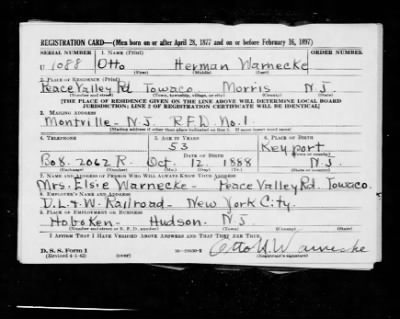 REGISTRATION CARD—(Men born on or after April 28, 1877 and on or before February 16, 1897)
SERIAL NUMBER 1. NAME (Print) ORDER NUMBER
U 1088 Otto Herman Warnecke
(First) (Middle) (Last)
2. PLACE OF RESIDENCE (Print)
Peace Valley Rd Towaco Morris N J
(Number and street) (Town, township, village, or city) (County) (State)
[THE PLACE OF RESIDENCE GIVEN ON THE LINE ABOVE WILL DETERMINE LOCAL BOARD
JURISDICTION; LINE 2 OF REGISTRATION CERTIFICATE WILL BE IDENTICAL]
3. MAILING ADDRESS
Montville - N.J. R.F.D. No. 1.
[Mailing address if other than place indicated on line 2. If same insert word same]
4. TELEPHONE 5. AGE IN YEARS 6. PLACE OF BIRTH
53 Keyport
DATE OF BIRTH (Town or county)
Bo 8. 2062 R. Oct. 12. 1888 N.J.
(Exchange) (Number) (Mo.) (Day) (Yr.) (State or country)
7. NAME AND ADDRESS OF PERSON WHO WILL ALWAYS KNOW YOUR ADDRESS
Mrs. Elsie Warnecke - Peace Valley Rd. Towaco.
8. EMPLOYER'S NAME AND ADDRESS
D.L. & W. Railroad - New York City.
9. PLACE OF EMPLOYMENT OR BUSINESS
Hoboken - Hudson. N J
(Number and street or R. F. D. number) (Town) (County) (State)
I AFFIRM THAT I HAVE VERIFIED ABOVE ANSWERS AND THAT THEY ARE TRUE.
D. S. S. Form 1
(Revised 4-1-42) (over) Otto H. Warnecke
(Registrant's signature)